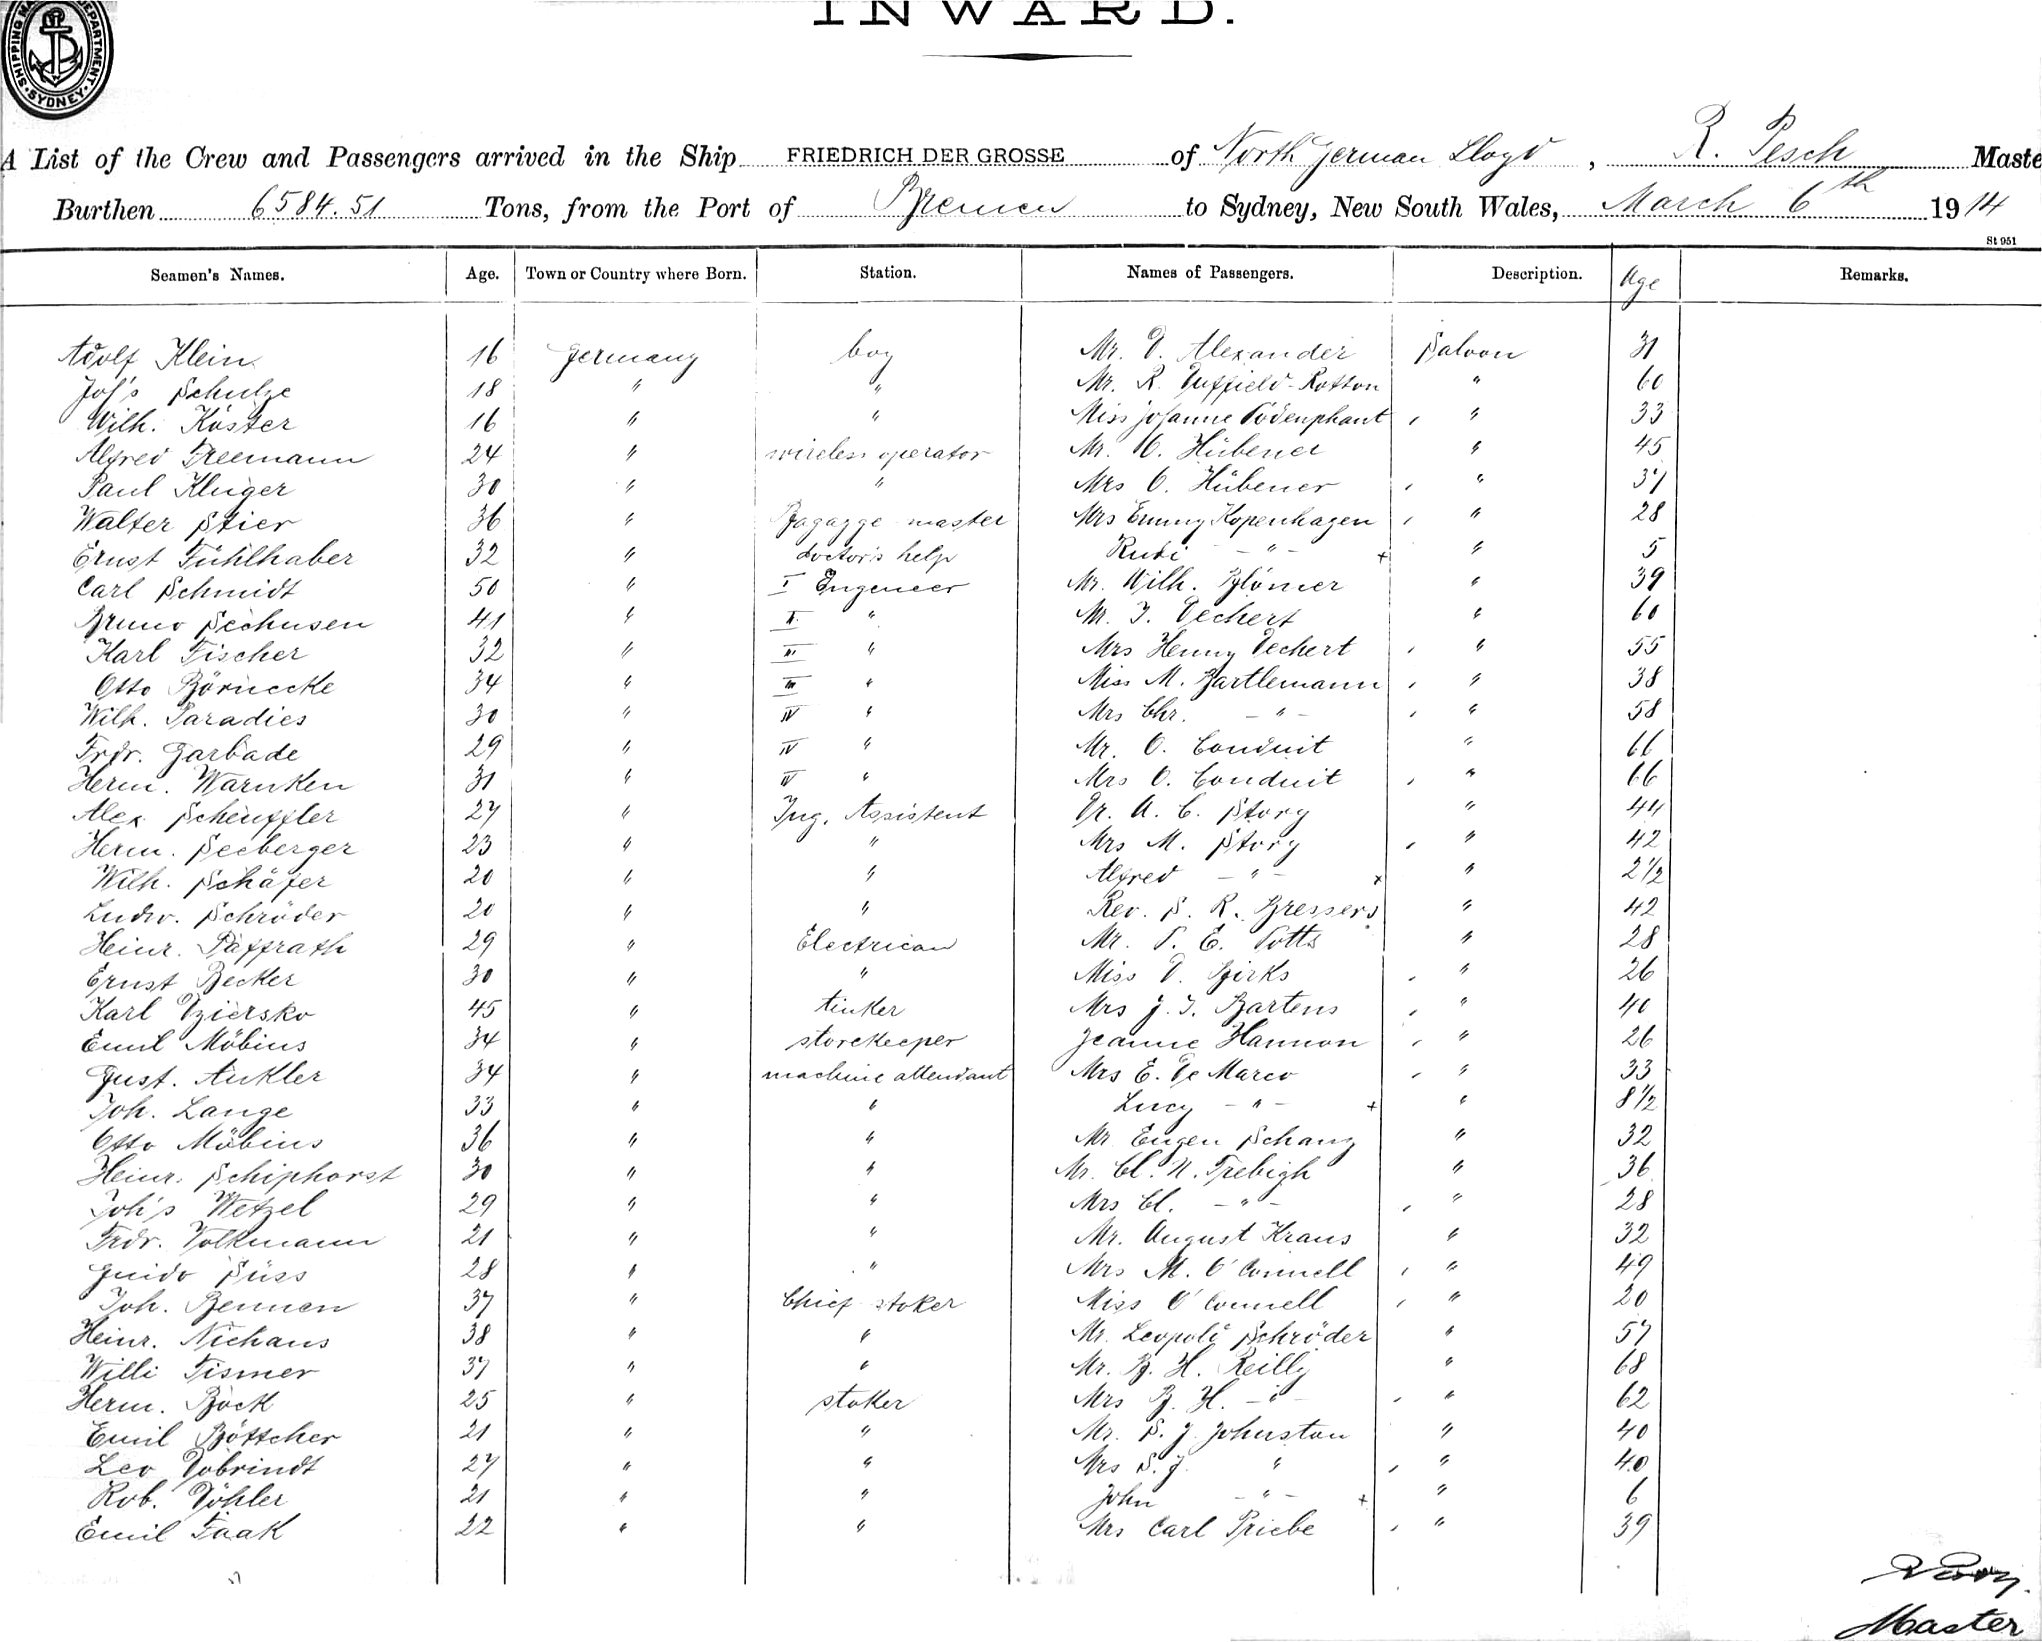 INWARD.
SHIPPING DEPARTMENT SYDNEY
A List of the Crew and Passengers arrived in the Ship FRIEDRICH DER GROSSE of North German Lloyd, R. Pesch Maste
Burthen 6584.51 Tons, from the Port of Bremen to Sydney, New South Wales, March 6th 1914
St 951
Seamen's Names. Age. Town or Country where Born. Station. Names of Passengers. Description. Age Remarks.
Adolf Klein 16 Germany boy Mr. D. Alexander Saloon 31
Joh's Schulze 18 " " Mr. R. Duffield-Rotton " 60
Wilh. Köster 16 " " Miss Johanne Södenphant " 33
Alfred Treemann 24 " wireless operator Mr. O. Hübener " 45
Paul Kluger 30 " " Mrs O. Hübener " 37
Walter Stier 36 " Bagagge master Mrs Emmy Kopenhagen " 28
Ernst Fühlhaber 32 " doctor's help Rudi - " - + " 5
Carl Schmidt 50 " I Engeneer Mr. Wilh. Blömer " 39
Bruno Sechusen 41 " II " Mr. J. Dechert " 60
Karl Fischer 32 " III " Mrs Henny Dechert " 55
Otto Börnecke 34 " III " Miss M. Bartlemann " 38
Wilh. Paradies 30 " IV " Mrs Chr. - " - " 58
Frdr. Garbade 29 " IV " Mr. O. Conduit " 66
Herm. Warnken 31 " IV " Mrs O. Conduit " 66
Alex Scheuffler 27 " Ing. Assistent Dr. A. C. Story " 44
Herm. Seeberger 23 " " Mrs M. Story " 42
Wilh. Schäfer 20 " " Alfred - " - x " 2 1/2
Ludw. Schröder 20 " " Rev. S. R. Bressers " 42
Heinr. Paffrath 29 " Electrican Mr. P. E. Potts " 28
Ernst Becker 30 " " Miss D. Birks " 26
Karl Dziersko 45 " tinker Mrs J. J. Bartens " 40
Emil Möbius 34 " storekeeper Jeanne Hannon " 26
Gust. Ankler 34 " machine attendant Mrs E. De Marco " 33
Joh. Lange 33 " " Lucy - " - + " 8 1/2
Otto Möbius 36 " " Mr Eugen Schanz " 32
Heinr. Schiphorst 30 " " Mr. Cl. N. Trebigh " 36
Joh's Wetzel 29 " " Mrs Cl. - " - " 28
Frdr. Volkmann 21 " " Mr. August Kraus " 32
Guido Süss 28 " " Mrs M. O'Connell " 49
Joh. Bennen 37 " Chief stoker Miss O'Connell " 20
Heinr. Niehaus 38 " " Mr. Leopold Schröder " 57
Willi Tismer 37 " " Mr. B. H. Reilly " 68
Herm. Böck 25 " stoker Mrs B. H. - " - " 62
Emil Böttcher 21 " " Mr. S. J. Johnston " 40
Leo Dobrindt 27 " " Mrs S. J. " " 40
Rob. Döhler 21 " " John - " - + " 6
Emil Faak 22 " " Mrs Carl Priebe " 39
Master